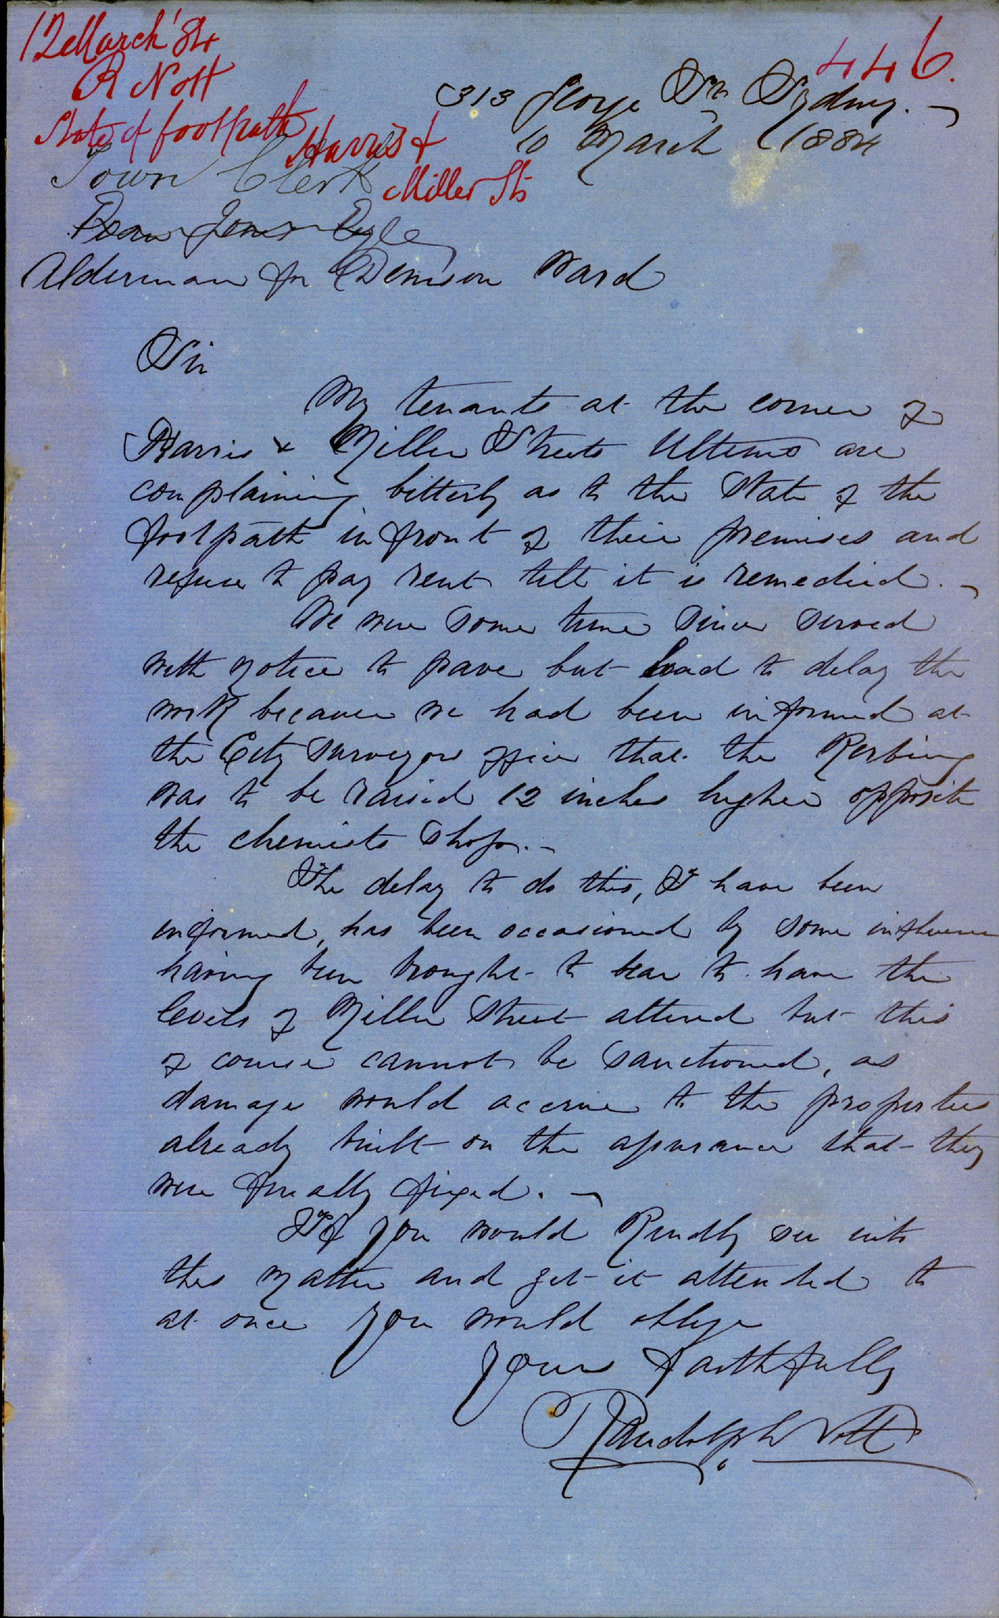 12 March '84
R Nott
State of footpath
Harris &
Miller Sts
446.
313 George St Sydney.
10 March 1884
Town Clerk
Alderman for Denison Ward
Sir
My tenants at the corner of
Harris & Miller Streets Ultimo are
complaining bitterly as to the State of the
footpath in front of their premises and
refuse to pay rent till it is remedied.
We were some time since served
with notice to pave but had to delay the
work because we had been informed at
the City Surveyors office that the Kerbing
was to be raised 12 inches higher opposite
the chemists shop.
The delay to do this, I have been
informed, has been occasioned by some influence
having been brought to bear to have the
levels of Miller Street altered but this
of course cannot be sanctioned, as
damage would accrue to the properties
already built on the assurance that they
were finally fixed.
If you would kindly see into
this matter and get it attended to
at once you would oblige
Yours faithfully
Randolph Nott